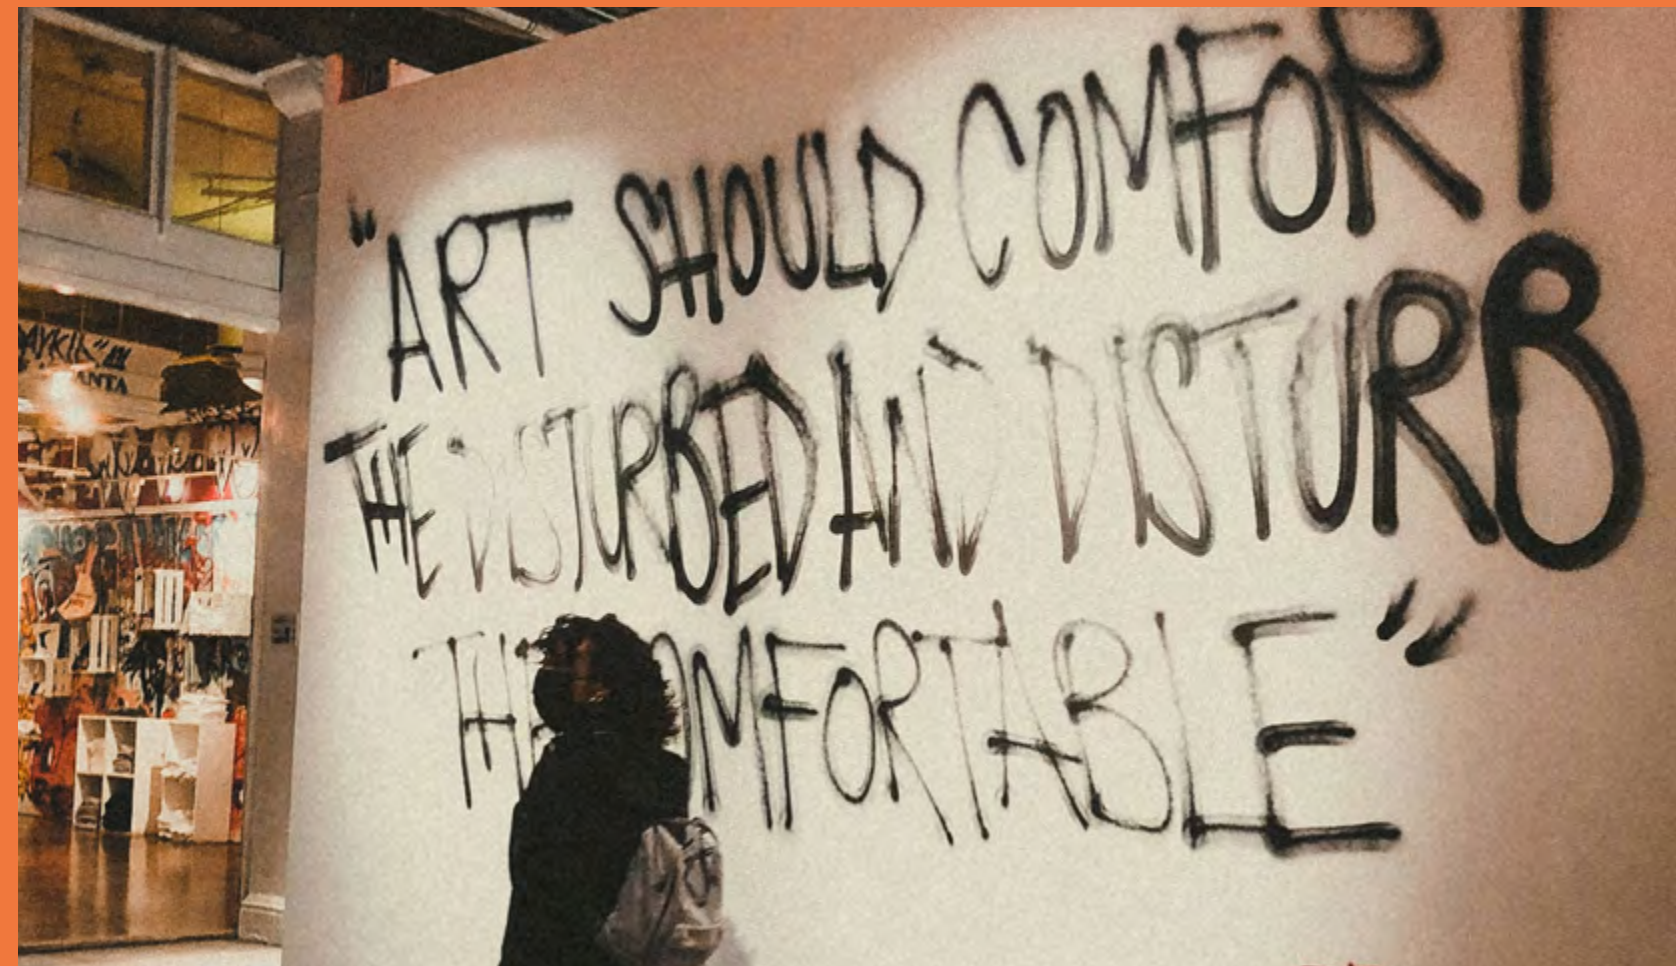 "ART SHOULD COMFORT
THE DISTURBED AND DISTURB
THE COMFORTABLE"